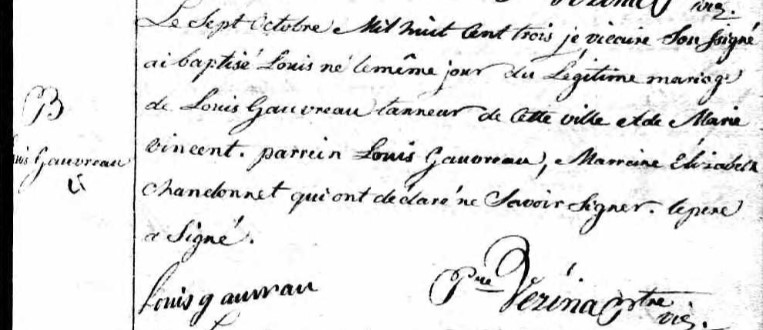 vic.
Le Sept Octobre Mil huit Cent trois je, vicaire Soussigné
ai baptisé Louis né le même jour du Légitime mariage
B de Louis Gauvreau tanneur de Cette ville et de Marie
Vincent. parrein Louis Gauvreau, Marreine Elizabeth
Louis Gauvreau
Chandonnet qui ont déclaré ne Savoir Signer. le pere
a Signé.
Louis gauvrau
Pre Vezina Ptre
vic.